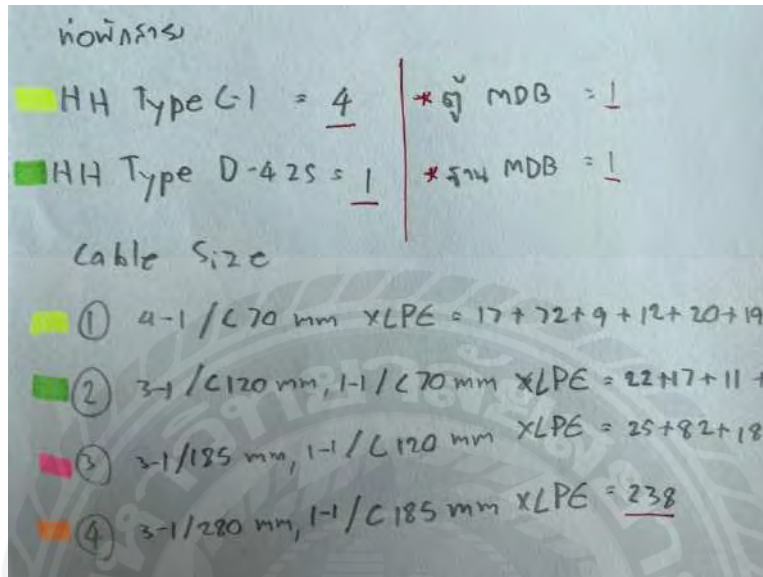 ท่อพักสาย
HH Type C-1 = 4
* ตู้ MDB = 1
HH Type D-425 = 1
* ฐาน MDB = 1
Cable Size
① 4-1/C70 mm XLPE = 17+72+9+12+20+19
② 3-1/C120 mm, 1-1/C70 mm XLPE = 22+17+11+
③ 3-1/185 mm, 1-1/C120 mm XLPE = 25+82+18
④ 3-1/280 mm, 1-1/C185 mm XLPE = 238